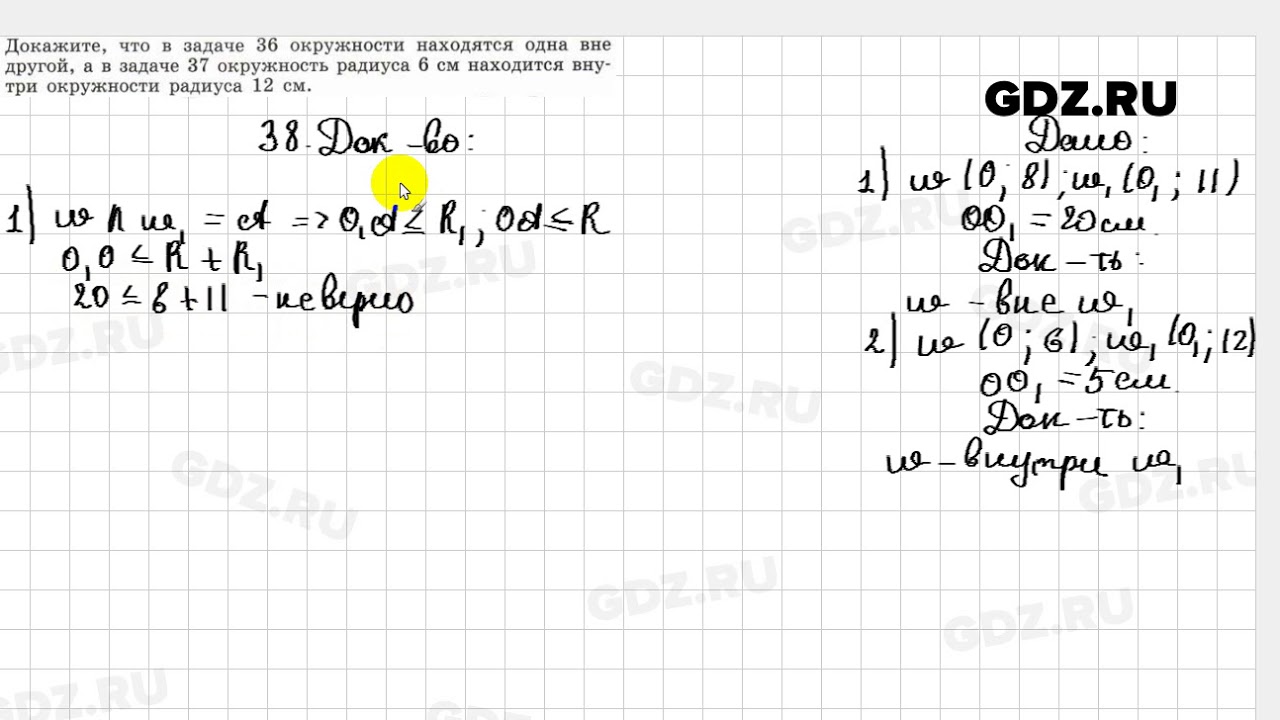 Докажите, что в задаче 36 окружности находятся одна вне
другой, а в задаче 37 окружность радиуса 6 см находится вну-
три окружности радиуса 12 см.
GDZ.RU
38. Док-во:
1) ω ∩ ω₁ = A => O₁A ≤ R₁; OA ≤ R
O₁O ≤ R + R₁
20 ≤ 8 + 11 - неверно
Дано:
1) ω (O; 8); ω₁ (O₁; 11)
OO₁ = 20 см.
Док-ть:
ω - вне ω₁
2) ω (O; 6); ω₁ (O₁; 12)
OO₁ = 5 см.
Док-ть:
ω - внутри ω₁
GDZ.RU
GDZ.RU
GDZ.RU
GDZ.RU
GDZ.RU
GDZ.RU
GDZ.RU
GDZ.RU
GDZ.RU
GDZ.RU
GDZ.RU